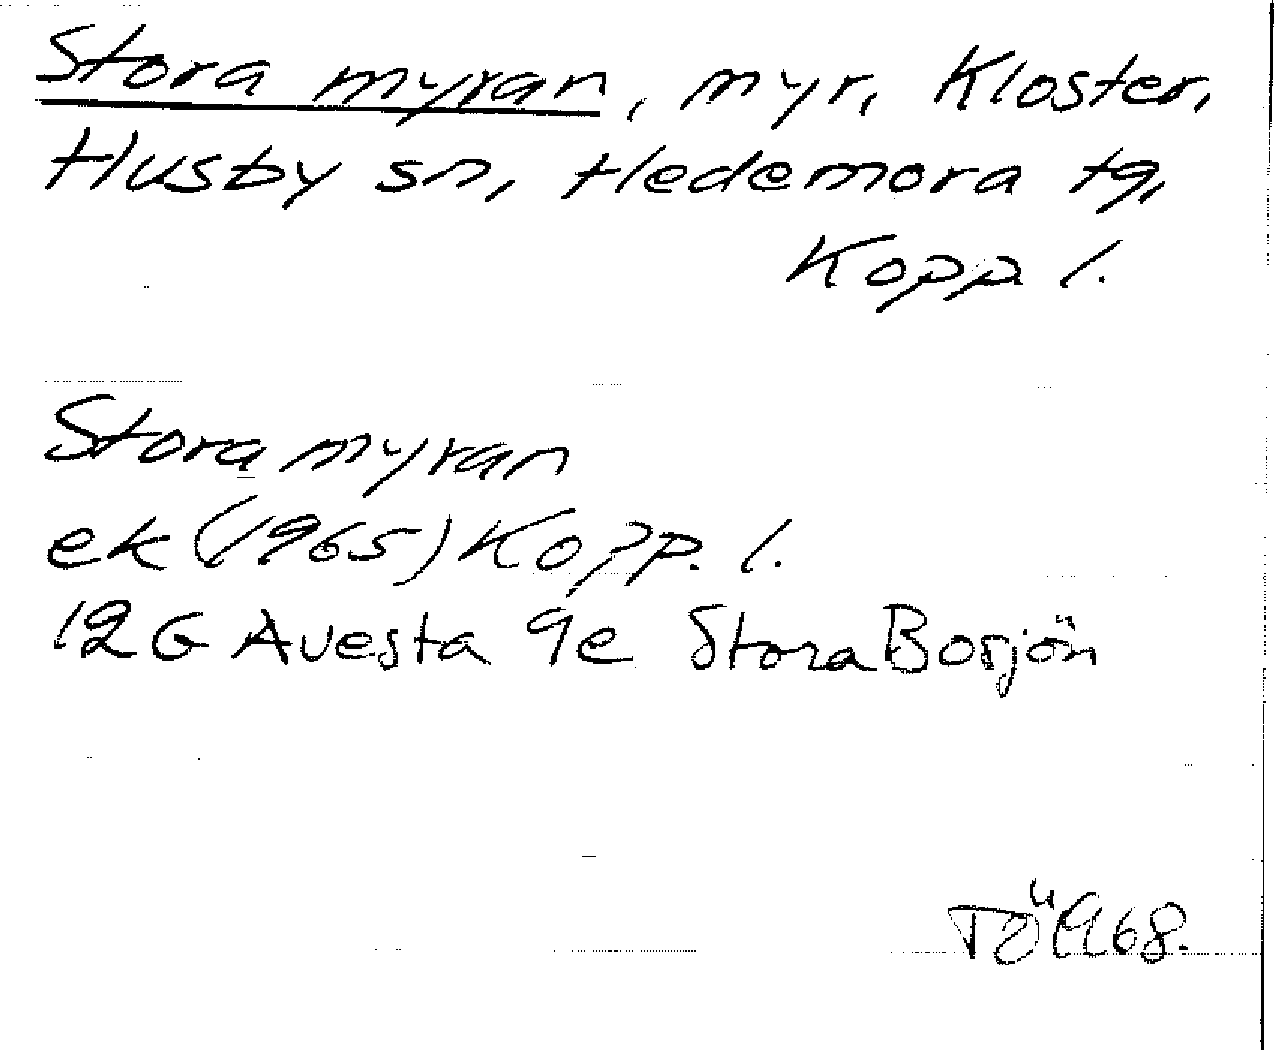 Stora myran, myr, Kloster,
Husby sn, Hedemora tg,
Kopp. l.
Stora myran
ek (1965) Kopp. l.
12G Avesta 9e Stora Borsjön
TÖ 1968.